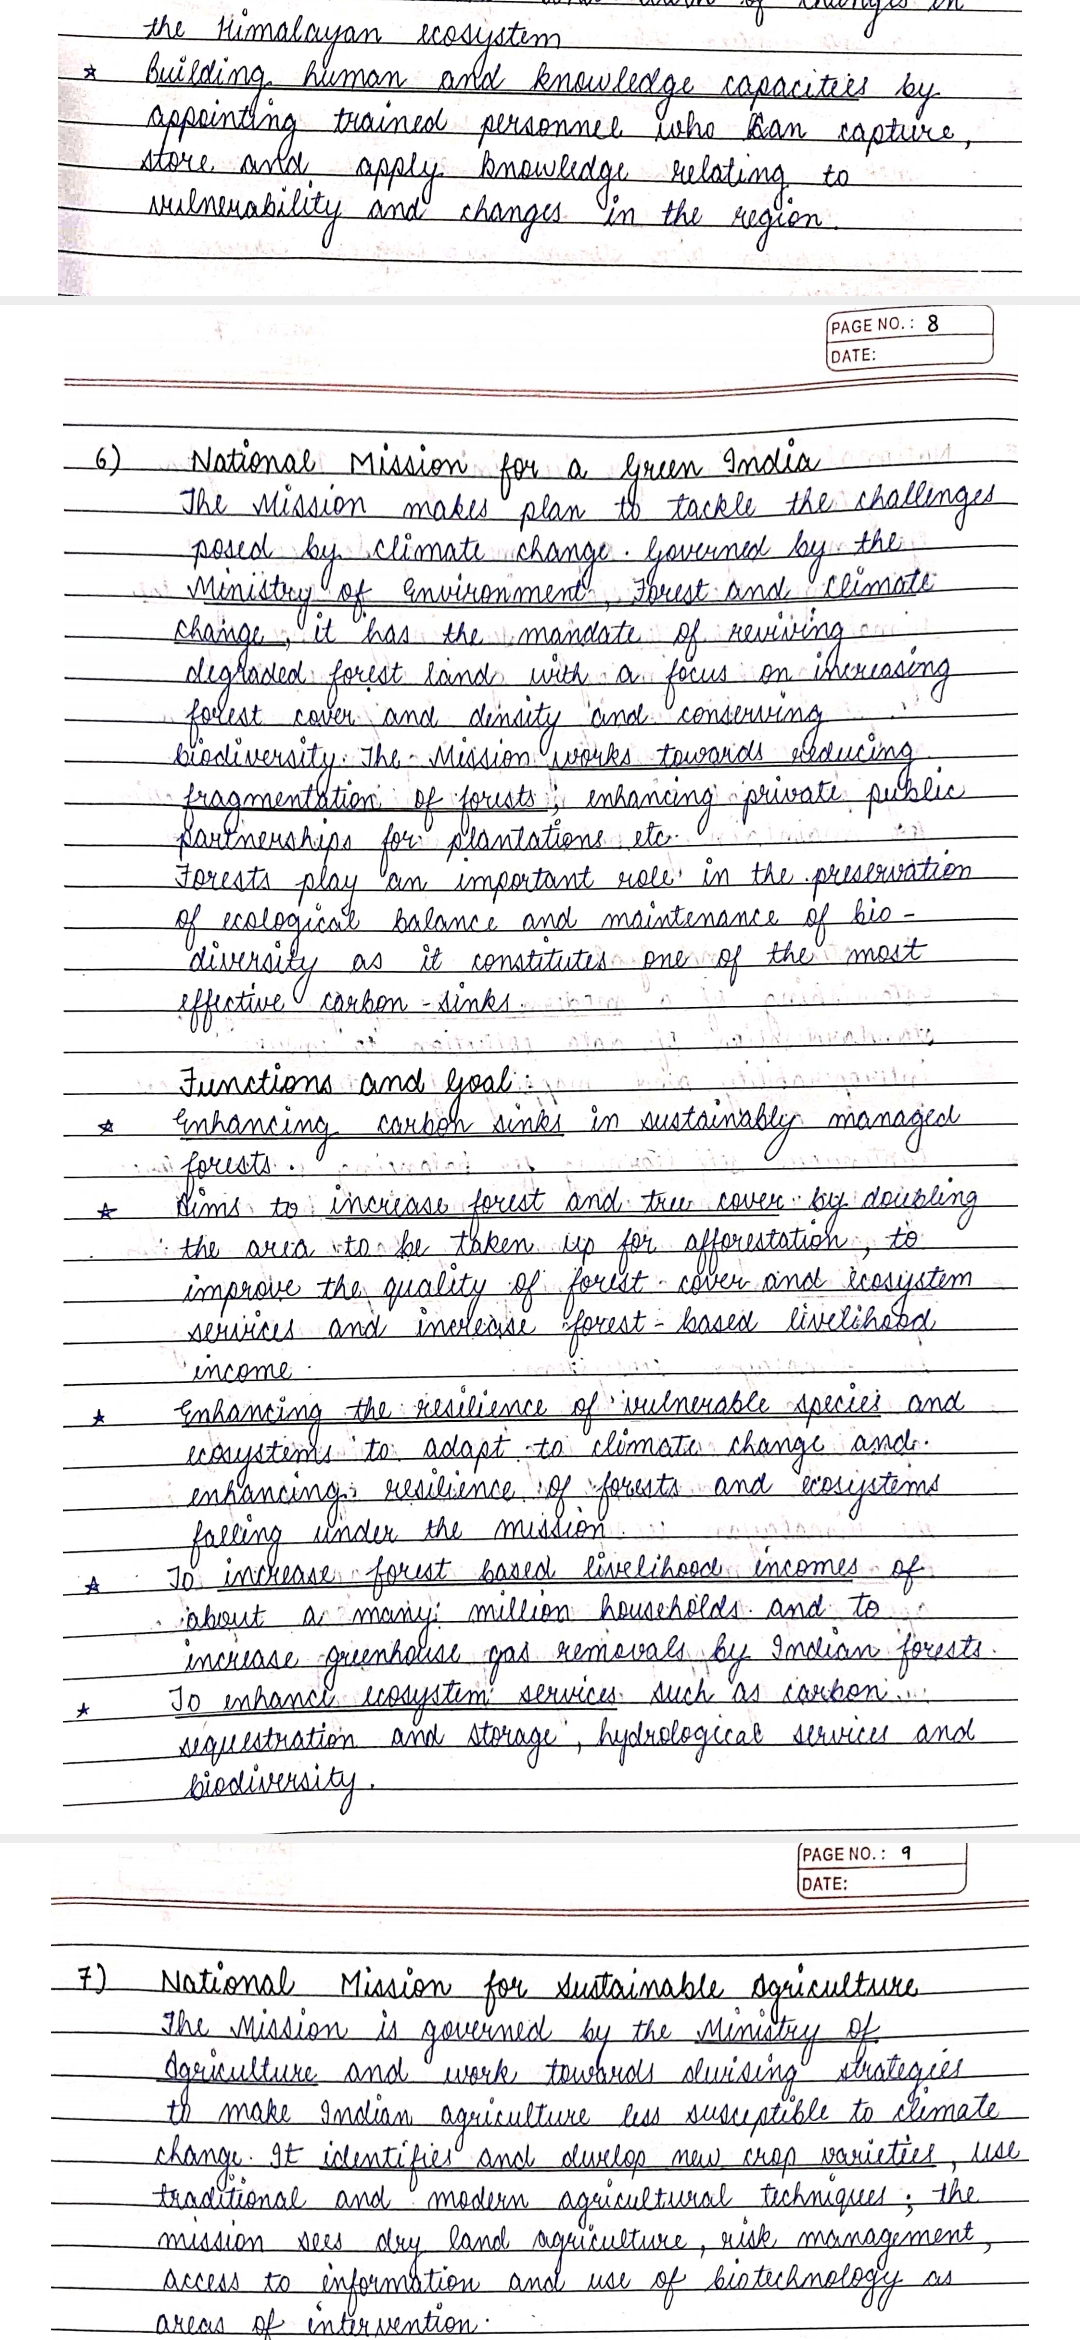 of changes in
the Himalayan ecosystem
☆ Building human and knowledge capacities by
appointing trained personnel who can capture,
store and apply knowledge relating to
vulnerability and changes in the region.
PAGE NO.: 8
DATE:
6) National Mission for a Green India
The Mission makes plan to tackle the challenges
posed by climate change. Governed by the
Ministry of Environment, Forest and climate
change, it has the mandate of reviving
degraded forest land with a focus on increasing
forest cover and density and conserving
biodiversity. The Mission works towards reducing
fragmentation of forests; enhancing private public
partnerships for plantations etc.
Forests play an important role in the preservation
of ecological balance and maintenance of bio-
diversity as it constitutes one of the most
effective carbon-sinks.
Functions and Goal:
☆ Enhancing carbon sinks in sustainably managed
forests.
☆ Aims to increase forest and tree cover by doubling
the area to be taken up for afforestation, to
improve the quality of forest-cover and ecosystem
services and increase forest-based livelihood
income.
☆ Enhancing the resilience of vulnerable species and
ecosystems to adapt to climate change and
enhancing resilience of forests and ecosystems
falling under the mission.
☆ To increase forest based livelihood incomes of
about a many million households and to
increase greenhouse gas removals by Indian forests.
☆ To enhance ecosystem services such as carbon
sequestration and storage, hydrological services and
biodiversity.
PAGE NO.: 9
DATE:
7) National Mission for Sustainable Agriculture
The Mission is governed by the Ministry of
Agriculture and work towards devising strategies
to make Indian agriculture less susceptible to climate
change. It identifies and develop new crop varieties, use
traditional and modern agricultural techniques; the
mission sees dry land agriculture, risk management,
access to information and use of biotechnology as
areas of intervention.